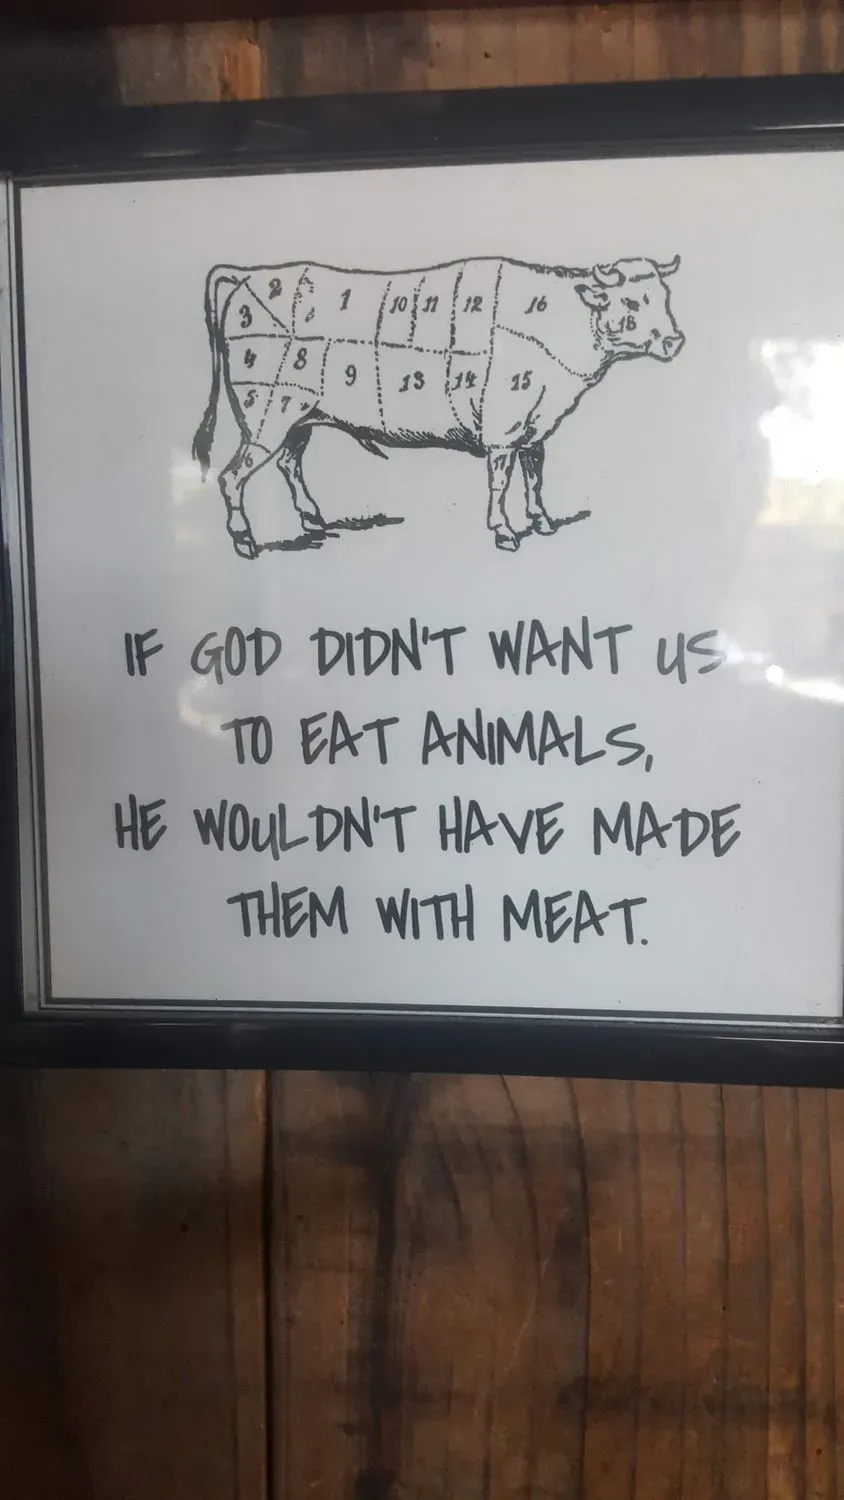 2 1 10 11 12 16
3 18
4 8 9 13 14 15
5 7
6 17
IF GOD DIDN'T WANT US
TO EAT ANIMALS,
HE WOULDN'T HAVE MADE
THEM WITH MEAT.